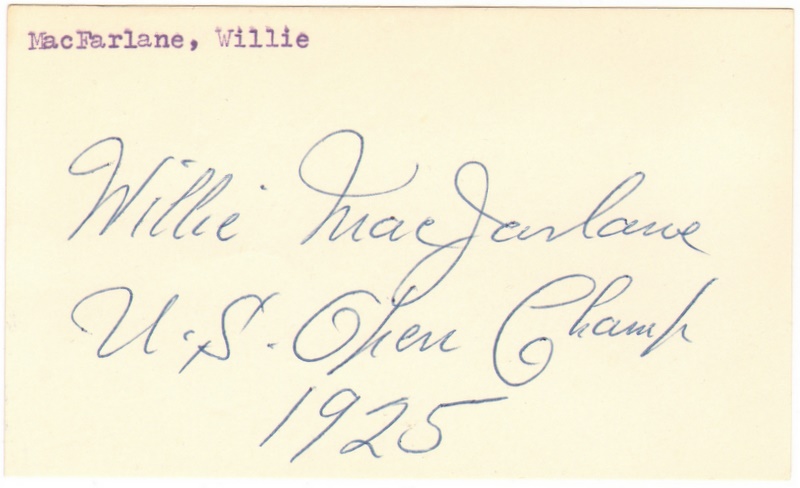 MacFarlane, Willie
Willie MacFarlane
U.S. Open Champ
1925